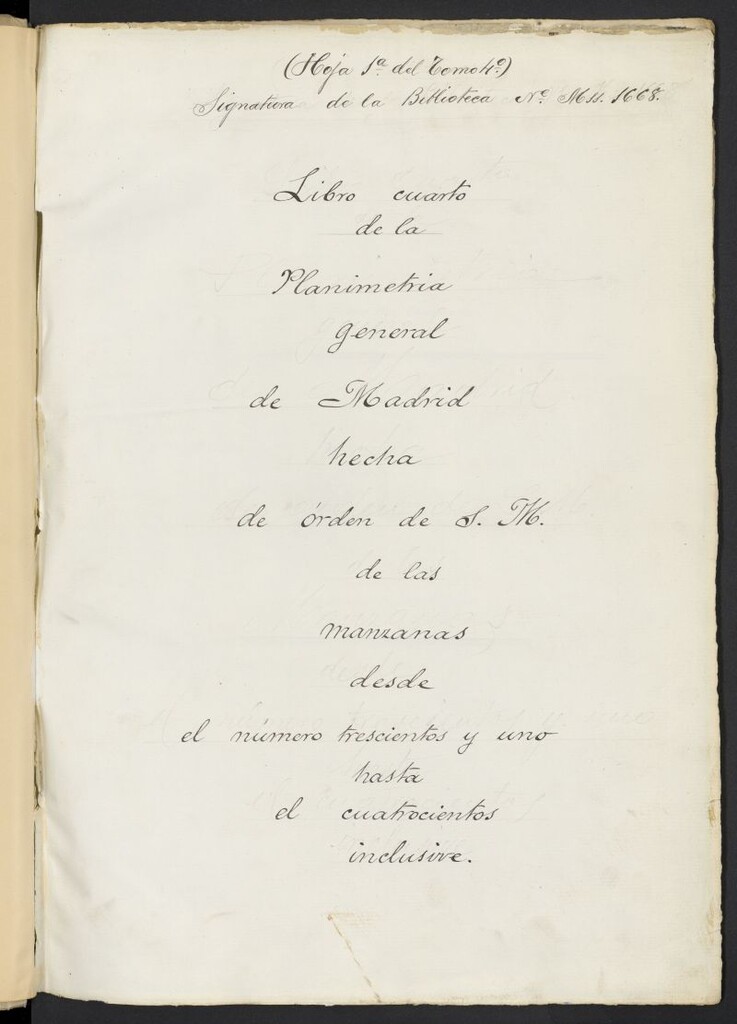 (Hoja 1ª del Tomo 4º)
Signatura de la Biblioteca Nº Mss. 1668.
Libro cuarto
de la
Planimetria
general
de Madrid
hecha
de órden de S. M.
de las
manzanas
desde
el número trescientos y uno
hasta
el cuatrocientos
inclusive.